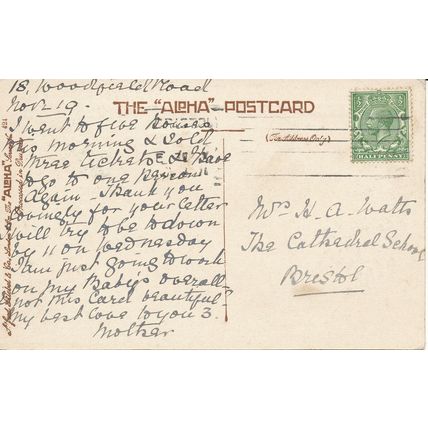 18, Woodfield Road
Nov 19.
I went to five houses
this morning & sold
three tickets & have
to go to one person
again - Thank you
lovingly for your letter
will try to be down
by 11 on Wednesday
I am just going to work
on my Baby's overall -
not this card beautiful -
my best love to you 3.
Mother
THE "ALPHA" POSTCARD
(For Address Only.)
HALFPENNY
Mrs H. A. Watts
The Cathedral School
Bristol
"ALPHA"